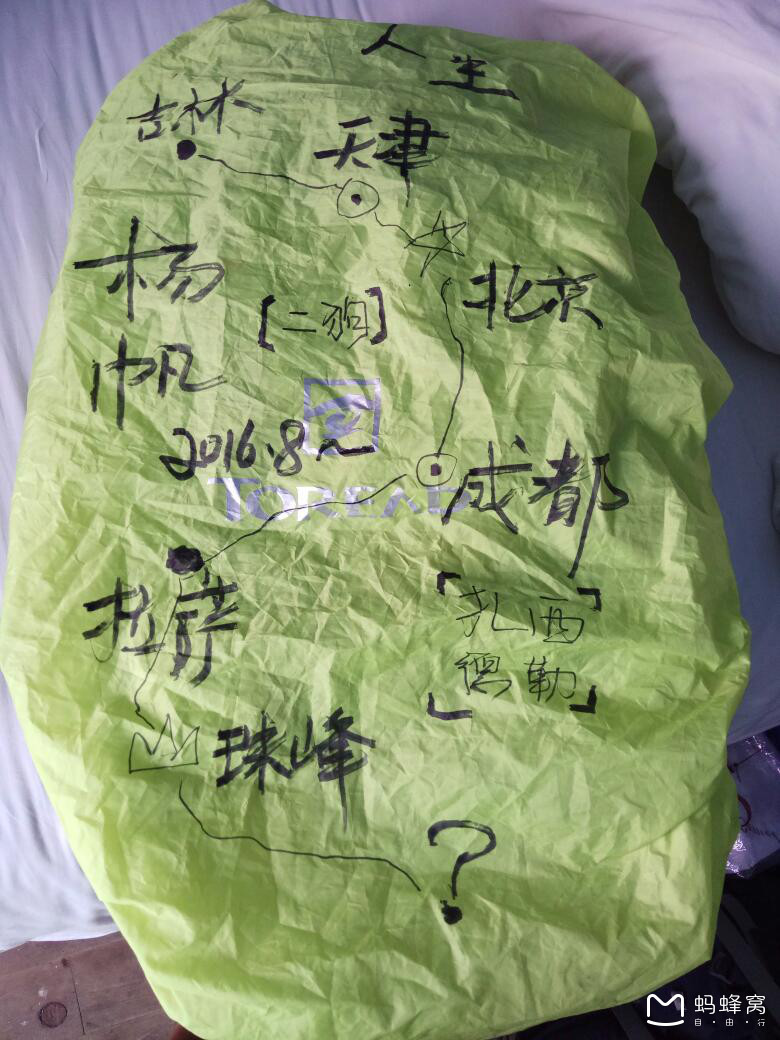 人生
吉林
天津
北京
杨帆
[二狗]
2016.8~
TOREAD
成都
拉萨
「扎西
德勒」
珠峰
?
蚂蜂窝
自·由·行